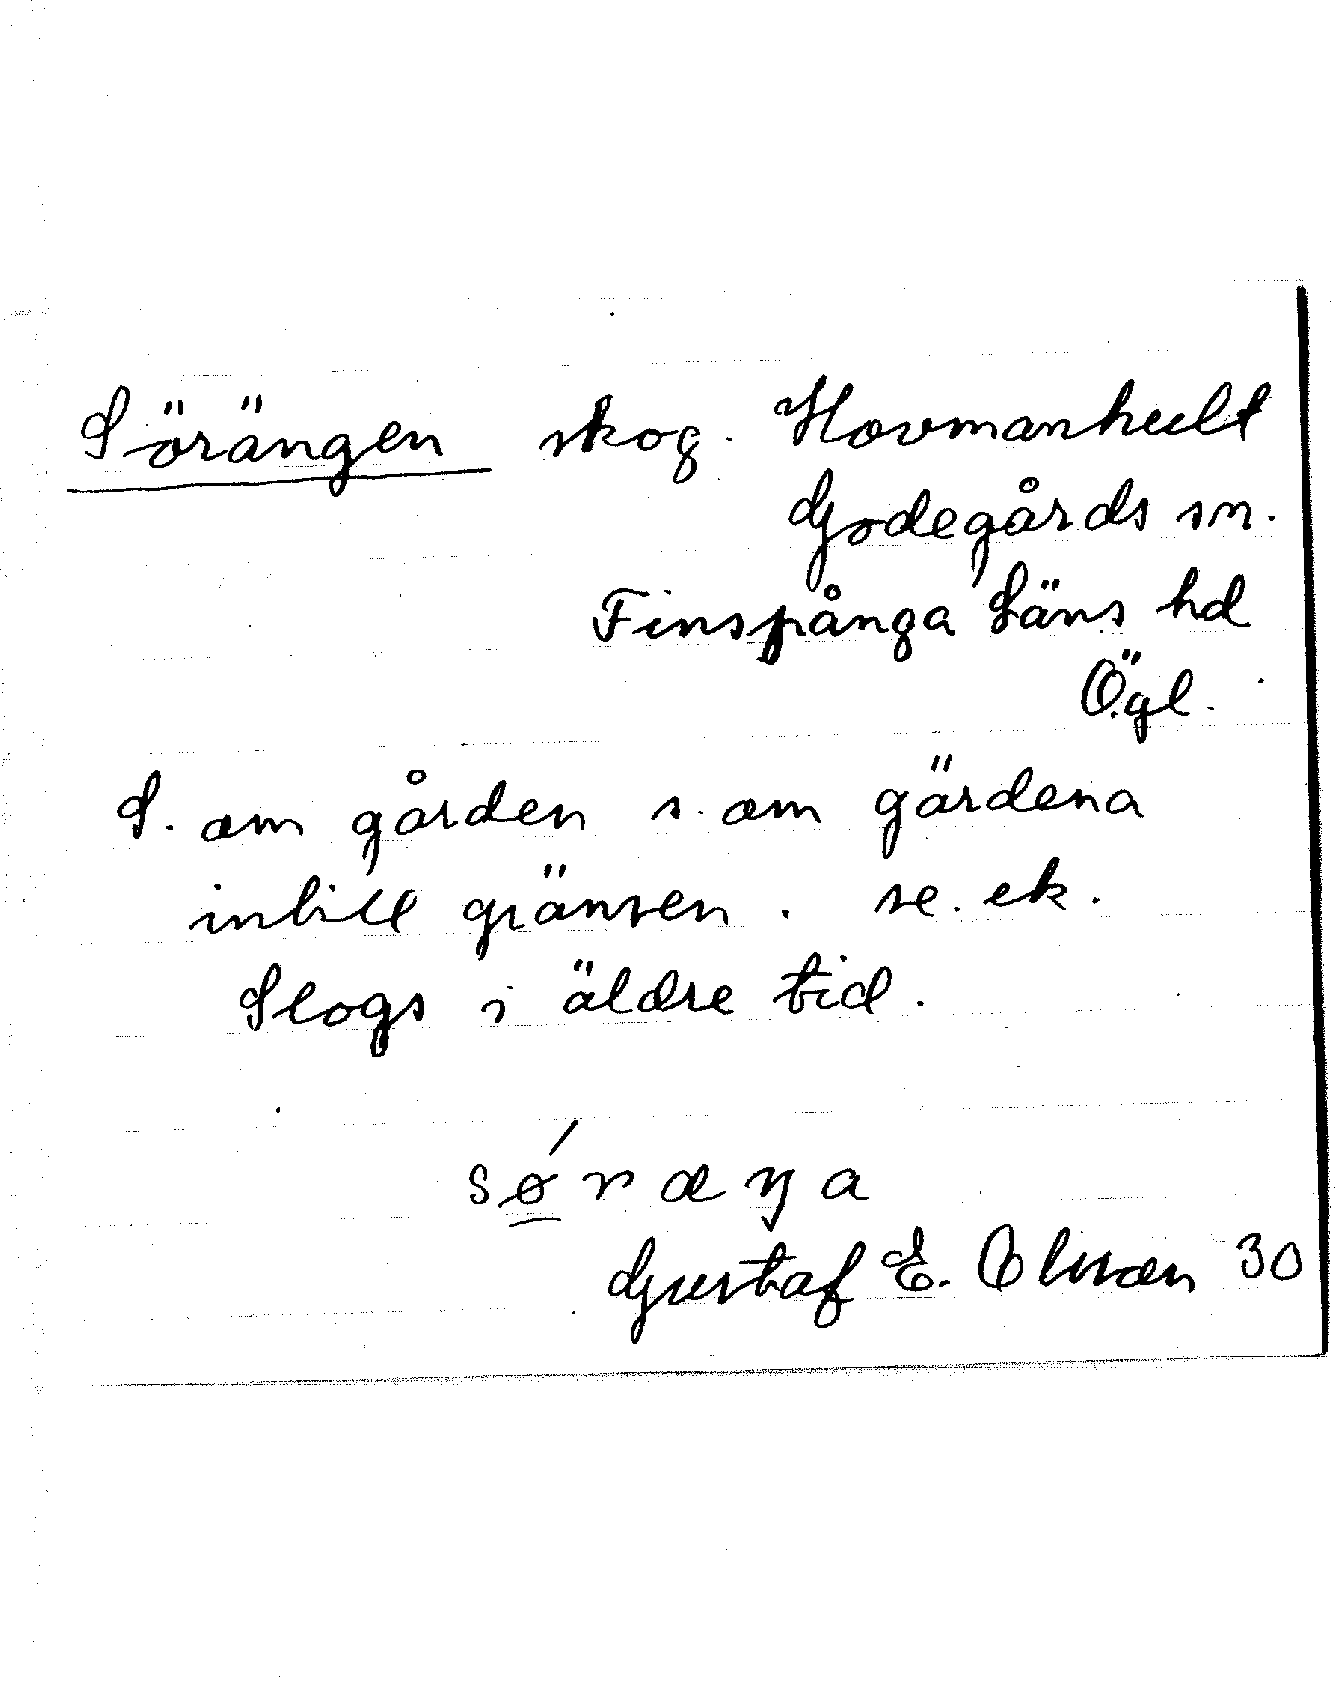 Sörängen skog. Hovmanhult
Godegårds sn.
Finspånga Läns hd
Ögl.
S. om gården s. om gärdena
intill gränsen. se. ek.
Slogs i äldre tid.
sǿ̲ræŋa
Gustaf E. Olsson 30